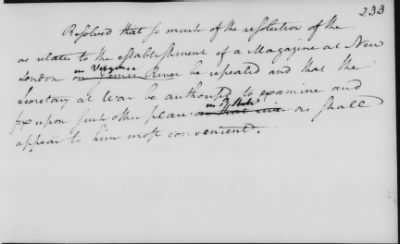 233
Resolved that so much of the resolution of the
as relates to the establishment of a Magazine at New
in Virginia
London on James River be repealed and that the
Secretary at War be authorised to examine and
in sd State
fix upon such other place on that river as shall
appear to him most convenient.